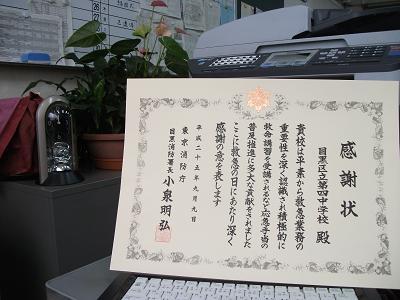 感謝状
目黒区立第四中学校 殿
貴校は平素から救急業務の
重要性を深く認識され積極的に
救命講習を受講されるなど応急手当の
普及推進に多大な貢献をされました
ここに救急の日にあたり深く
感謝の意を表します
平成二十五年九月九日
東京消防庁
目黒消防署長 小泉明弘